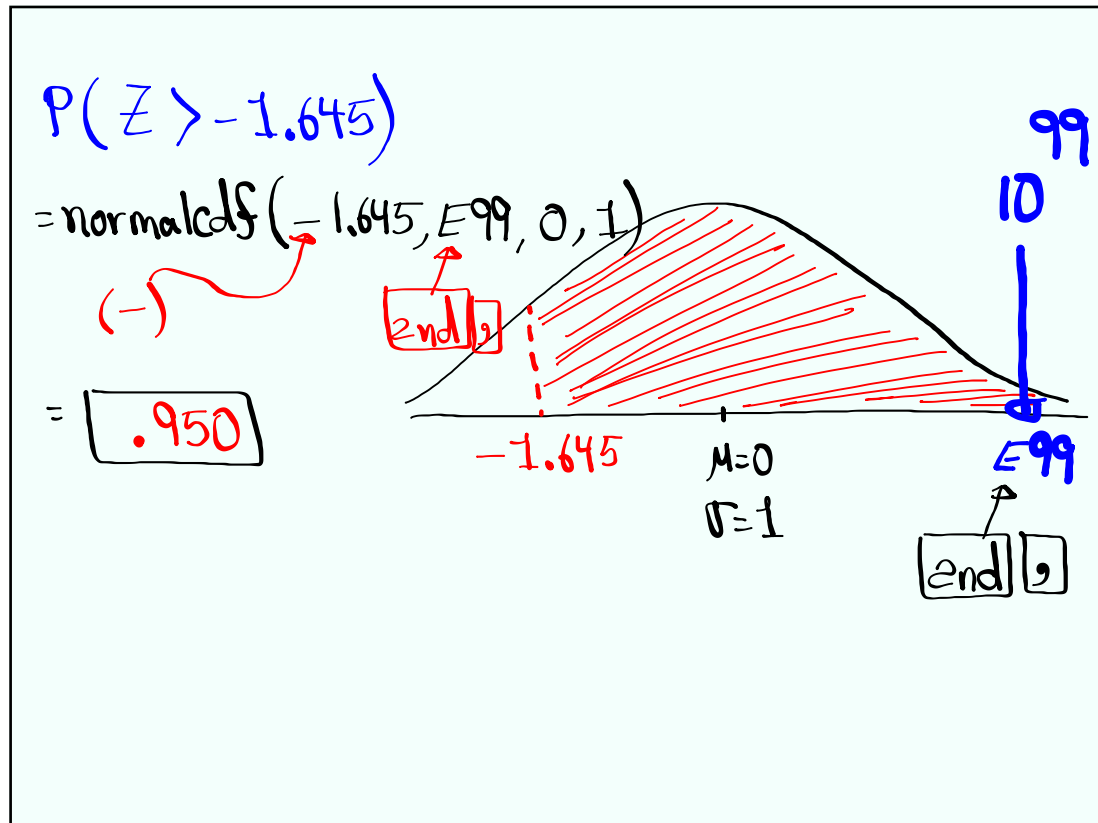 P(Z > -1.645)
= normalcdf(-1.645, E99, 0, 1)
(-)
2nd ,
= .950
-1.645
μ=0
σ=1
10^99
E99
2nd ,